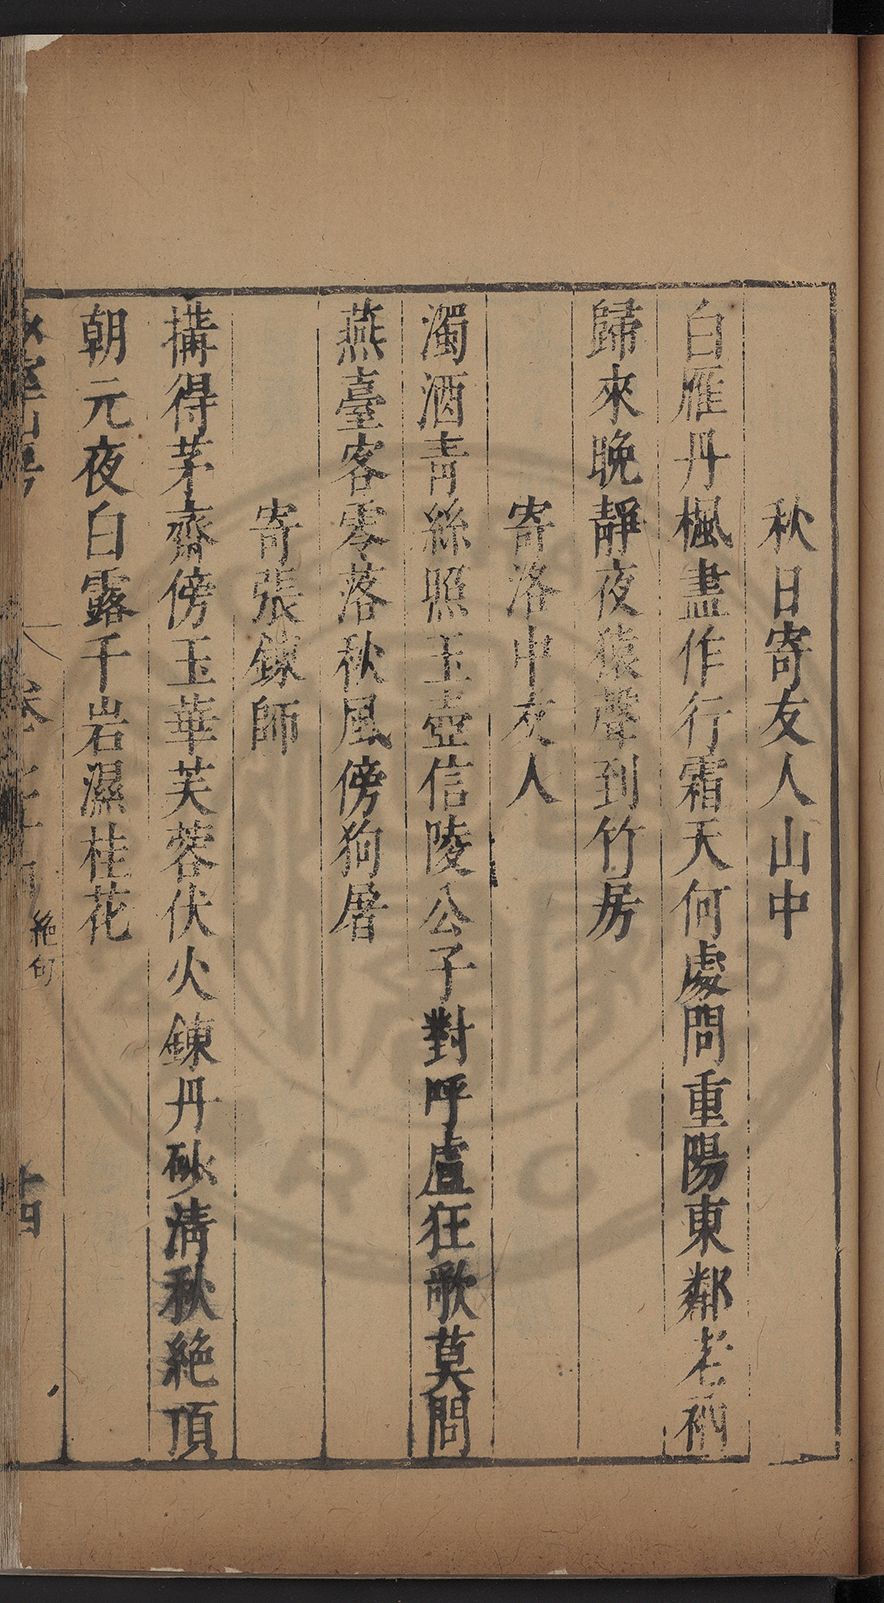 秋日寄友人山中
白雁丹楓盡作行霜天何處問重陽東鄰老衲
歸來晚靜夜猿聲到竹房
寄洛中友人
濁酒青絲照玉壺信陵公子對呼盧狂歌莫問
燕臺客零落秋風傍狗屠
寄張鍊師
搆得茅齊傍玉華芙蓉伏火鍊丹砂清秋絕頂
朝元夜白露千岩濕桂花
卷之 絕句 十四